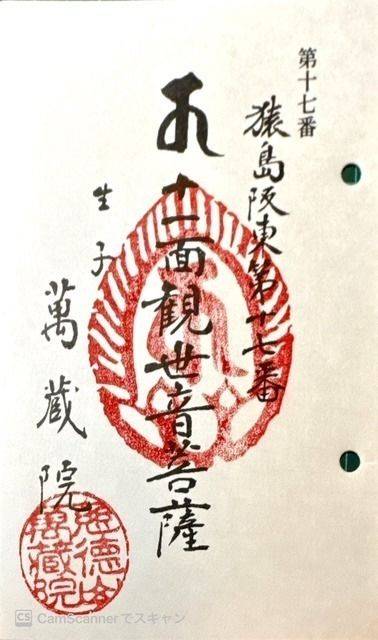 第十七番
猿島阪東第十七番
十一面観世音菩薩
生子
萬蔵院
萬蔵院
CS CamScannerでスキャン